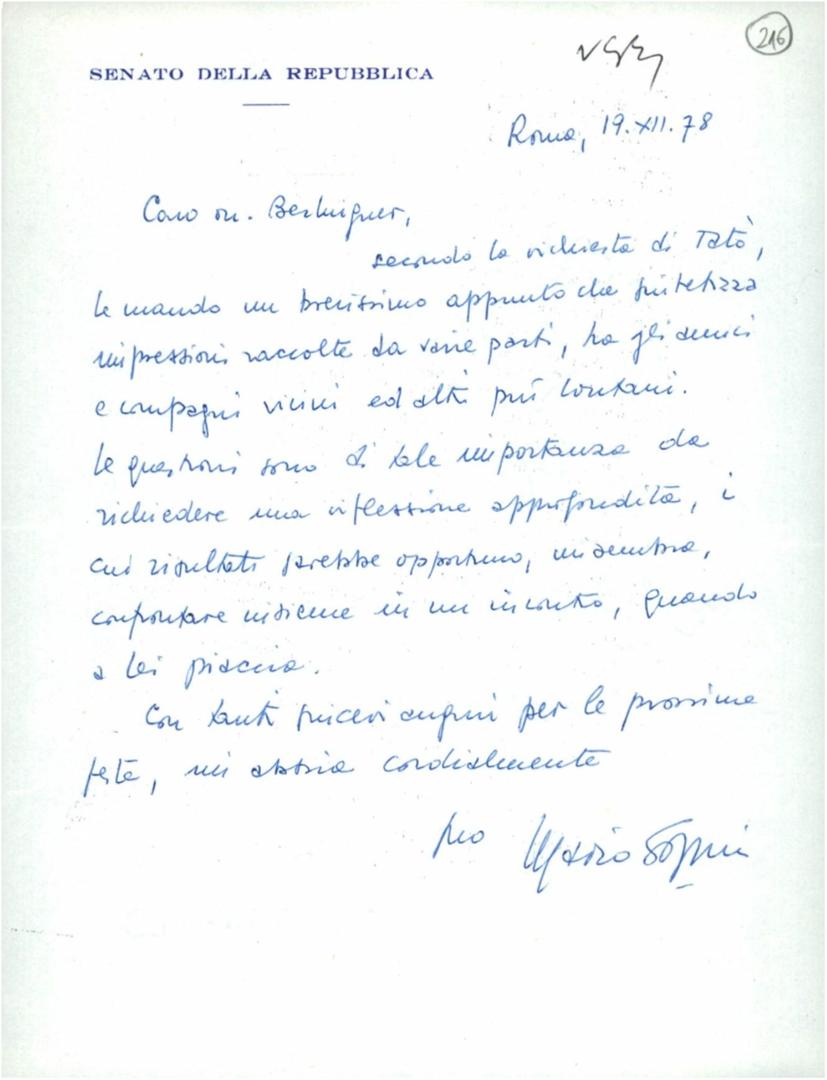 216
SENATO DELLA REPUBBLICA
Roma, 19.XII.78
Caro on. Berlinguer,
secondo la richiesta di Tatò,
le mando un brevissimo appunto che sintetizza
impressioni raccolte da varie parti, tra gli amici
e compagni vicini ed altri più lontani.
Le questioni sono di tale importanza da
richiedere una riflessione approfondita, i
cui risultati sarebbe opportuno, mi sembra,
confrontare insieme in un incontro, quando
a lei piaccia.
Con tanti sinceri auguri per le prossime
feste, mi abbia cordialmente
suo Mario Gozzini